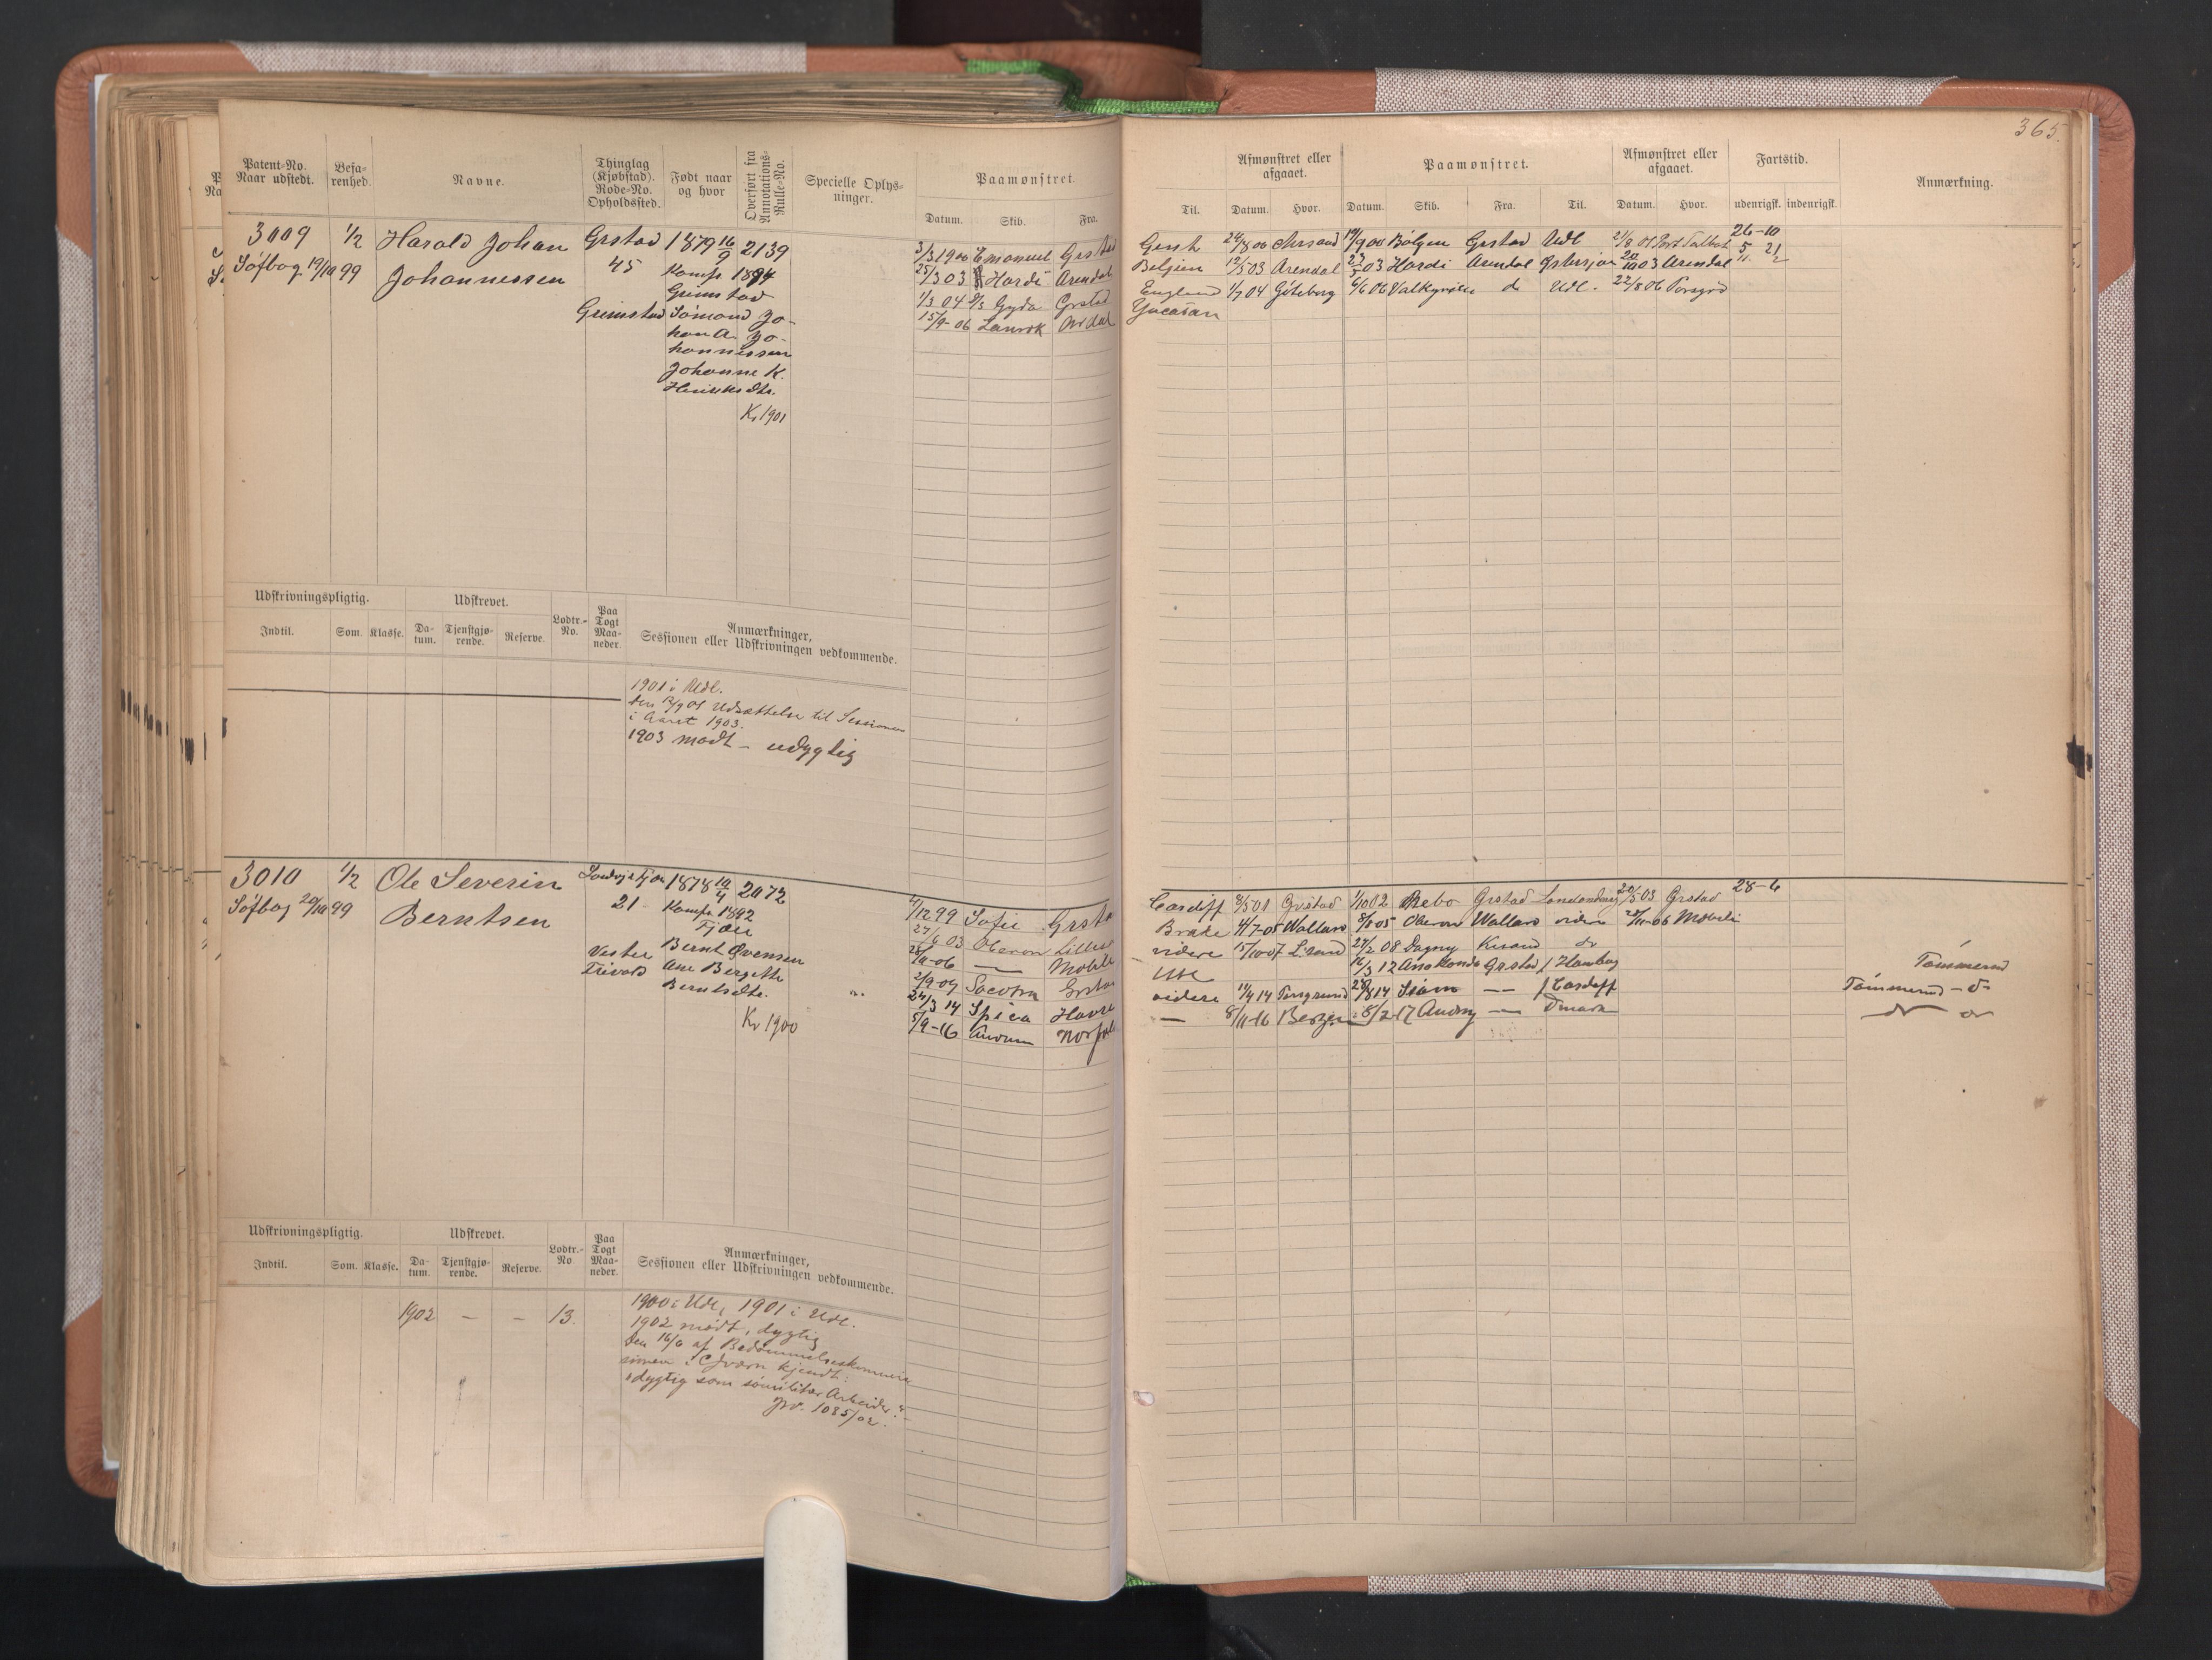 365.
Patent-No. Naar udstedt.
Befarenhed.
Navne.
Thinglag (Kjøbstad). Rode-No. Opholdssted.
Født naar og hvor
Overført fra Annotations-Rulle-No.
Specielle Oplysninger.
Paamønstret.
Datum. Skib. Fra.
Til.
Afmønstret eller afgaaet.
Datum. Hvor.
Paamønstret.
Datum. Skib. Fra. Til.
Afmønstret eller afgaaet.
Datum. Hvor.
Fartstid.
udenrigsk. indenrigsk.
Anmærkning.
3009 1/2 Harald Johan Grstad 1879 16/9 2139
Søfbog 19/10 99 Johannessen 45 Konf. 1894
Grimstad
Grimstad Sømand Jo-
han A. Jo-
hannessen
Johanne K.
Henriksdtr.
Kr 1901
3/3 1900 Emanuel Grstad
25/3 03 Hardi Arendal
1/3 04 Gyda Grstad
15/9-06 Ardal
Gent 24/8 00 19/9 00 Bølgen Grstad Udl 2/8 01 Port Talbot 26-10
Belgien 12/5 03 Arendal 23/5 03 Hardi Arendal Østersjøn 20/10 03 Arendal 5 21
England 1/7 04 Göteborg 6/6 06 Valkyrien do Udl. 22/8 06 Porsgrd
Yucatan
Udskrivningspligtig.
Indtil. Som. Klasse.
Udskrevet.
Datum. Tjenstgjørende. Reserve.
Lodtr.-No.
Paa Togt Maaneder.
Anmærkninger,
Sessionen eller Udskrivningen vedkommende.
1901 i Udl.
Udsættelse til Sessionen
i Aaret 1903.
1903 mødt - udygtig
3010 1/2 Ole Severin 1878 10/4 2072
Søfbog 20/10 99 Berntsen 21 Konf. 1892
Fjære
Vester Bernt Øvensen
Ane Bergethe
Berntsdtr.
Kr 1900
4/12 99 Sofie Grstad
27/6 03 Oberon
28/10-06 — Mobile
2/9-09
24/3 14 Spica Havre
5/9-16
Cardiff 3/5 01 Grstad 1/10 02 Rebo Grstad 20/5 03 Grstad 28-6
Brake 4/7-05 Wallaro 8/8 05 Oberon Wallaro videre 28/10-06 Mobile
videre 15/10 07 27/2 08 Dagny do
16/3 12 Anakonda Grstad / Hamburg
Udl
videre 11/4 14 28/8 14 Siam — / Cardiff
— 8/11-16 Bergen 8/2-17 —
Tømmermd
Tømmermd - do
do do
Udskrivningspligtig.
Indtil. Som. Klasse.
Udskrevet.
Datum. Tjenstgjørende. Reserve.
Lodtr.-No
Paa Togt Maaneder.
Anmærkninger,
Sessionen eller Udskrivningen vedkommende.
1902 - - 13.
1900 i Udl, 1901 i Udl.
1902 mødt, dygtig
den 16/6 af Bedømmelseskommis-
sionen i C Jværn kjendt:
"dygtig som sømilitær Arbeider".
Jv. 1035/02.